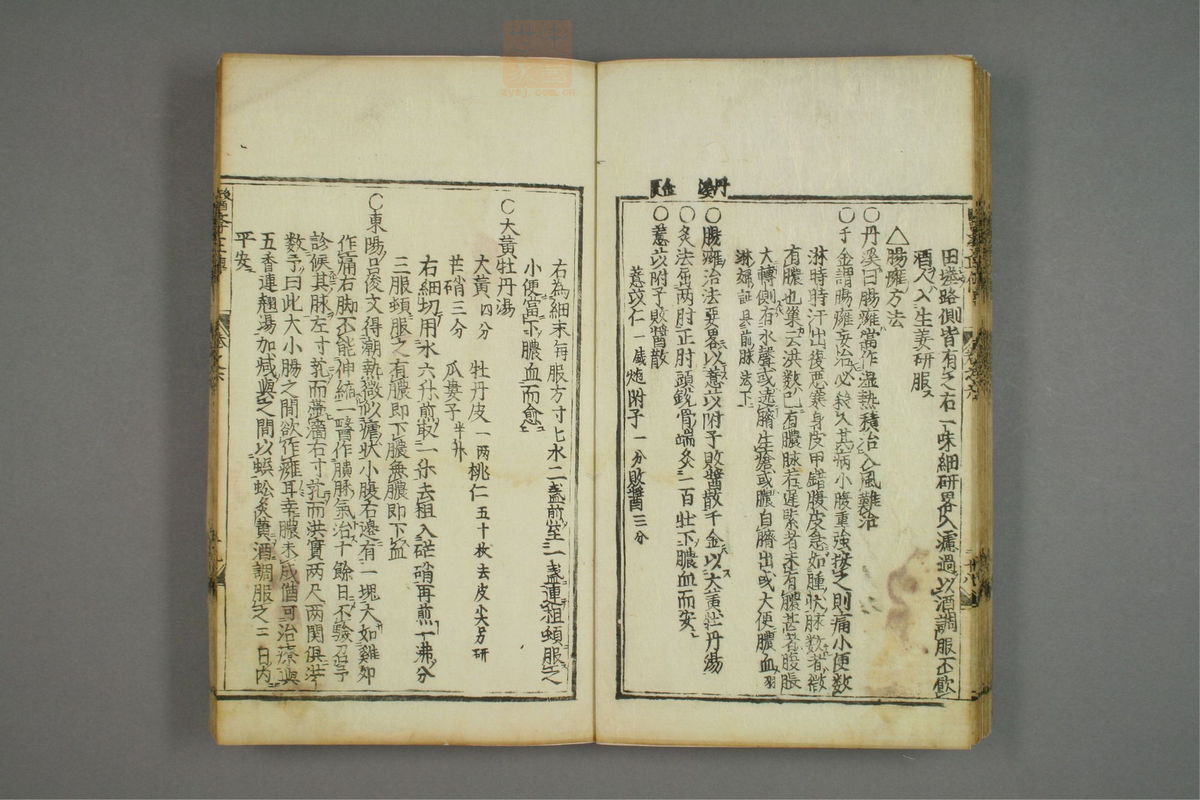 丹溪 金匱
田塍路側皆有之右一味細研畧入濾過以酒調服不飲
酒人入生姜研服
△腸癰方法
○丹溪曰腸癰當作濕熱積治入風難治
○千金謂腸癰妄治必殺人其病小腹重強按之則痛小便數
淋時時汗出復惡寒身皮甲錯腹皮急如腫狀脉数者微
有膿也巢云洪数已有膿脉若遲緊者未有膿甚者腹脹
大轉側有水聲或遶臍生瘡或膿自臍出或大便膿血羽
淋婦証具前脉法下
○腸癰治法要畧以薏苡附子敗醬散千金以大黄牡丹湯
○灸法屈两肘正肘頭銳骨端灸一百壮下膿血而安
○薏苡附子敗醬散
薏苡仁 炮附子 一分 敗醬 三分
右為細末每服方寸匕水二盞煎至一盞連粗頓服之
小便當下膿血而愈
○大黄牡丹湯
大黄 四分 牡丹皮 一两 桃仁 五十枚去皮尖另研
芒硝 三分 瓜蔞子 半升
右細切用水六升煎取一升去粗入硭硝再煎一沸分
二服頓服之有膿即下膿無膿即下血
○東陽呂俊文得潮熱微似瘧状小腹右邊有一塊大如雞卵
作痛右脚不能伸縮一醫作膹豚氣治十餘日不驗召予
診候其脉左寸芤而帶濇右寸芤而洪實两尺两関俱洪
数予曰此大小腸之間欲作癰耳幸膿未成猶可治療與
五香連翹湯加减與之間以蜈蚣炙黄酒調服之二日内
平安